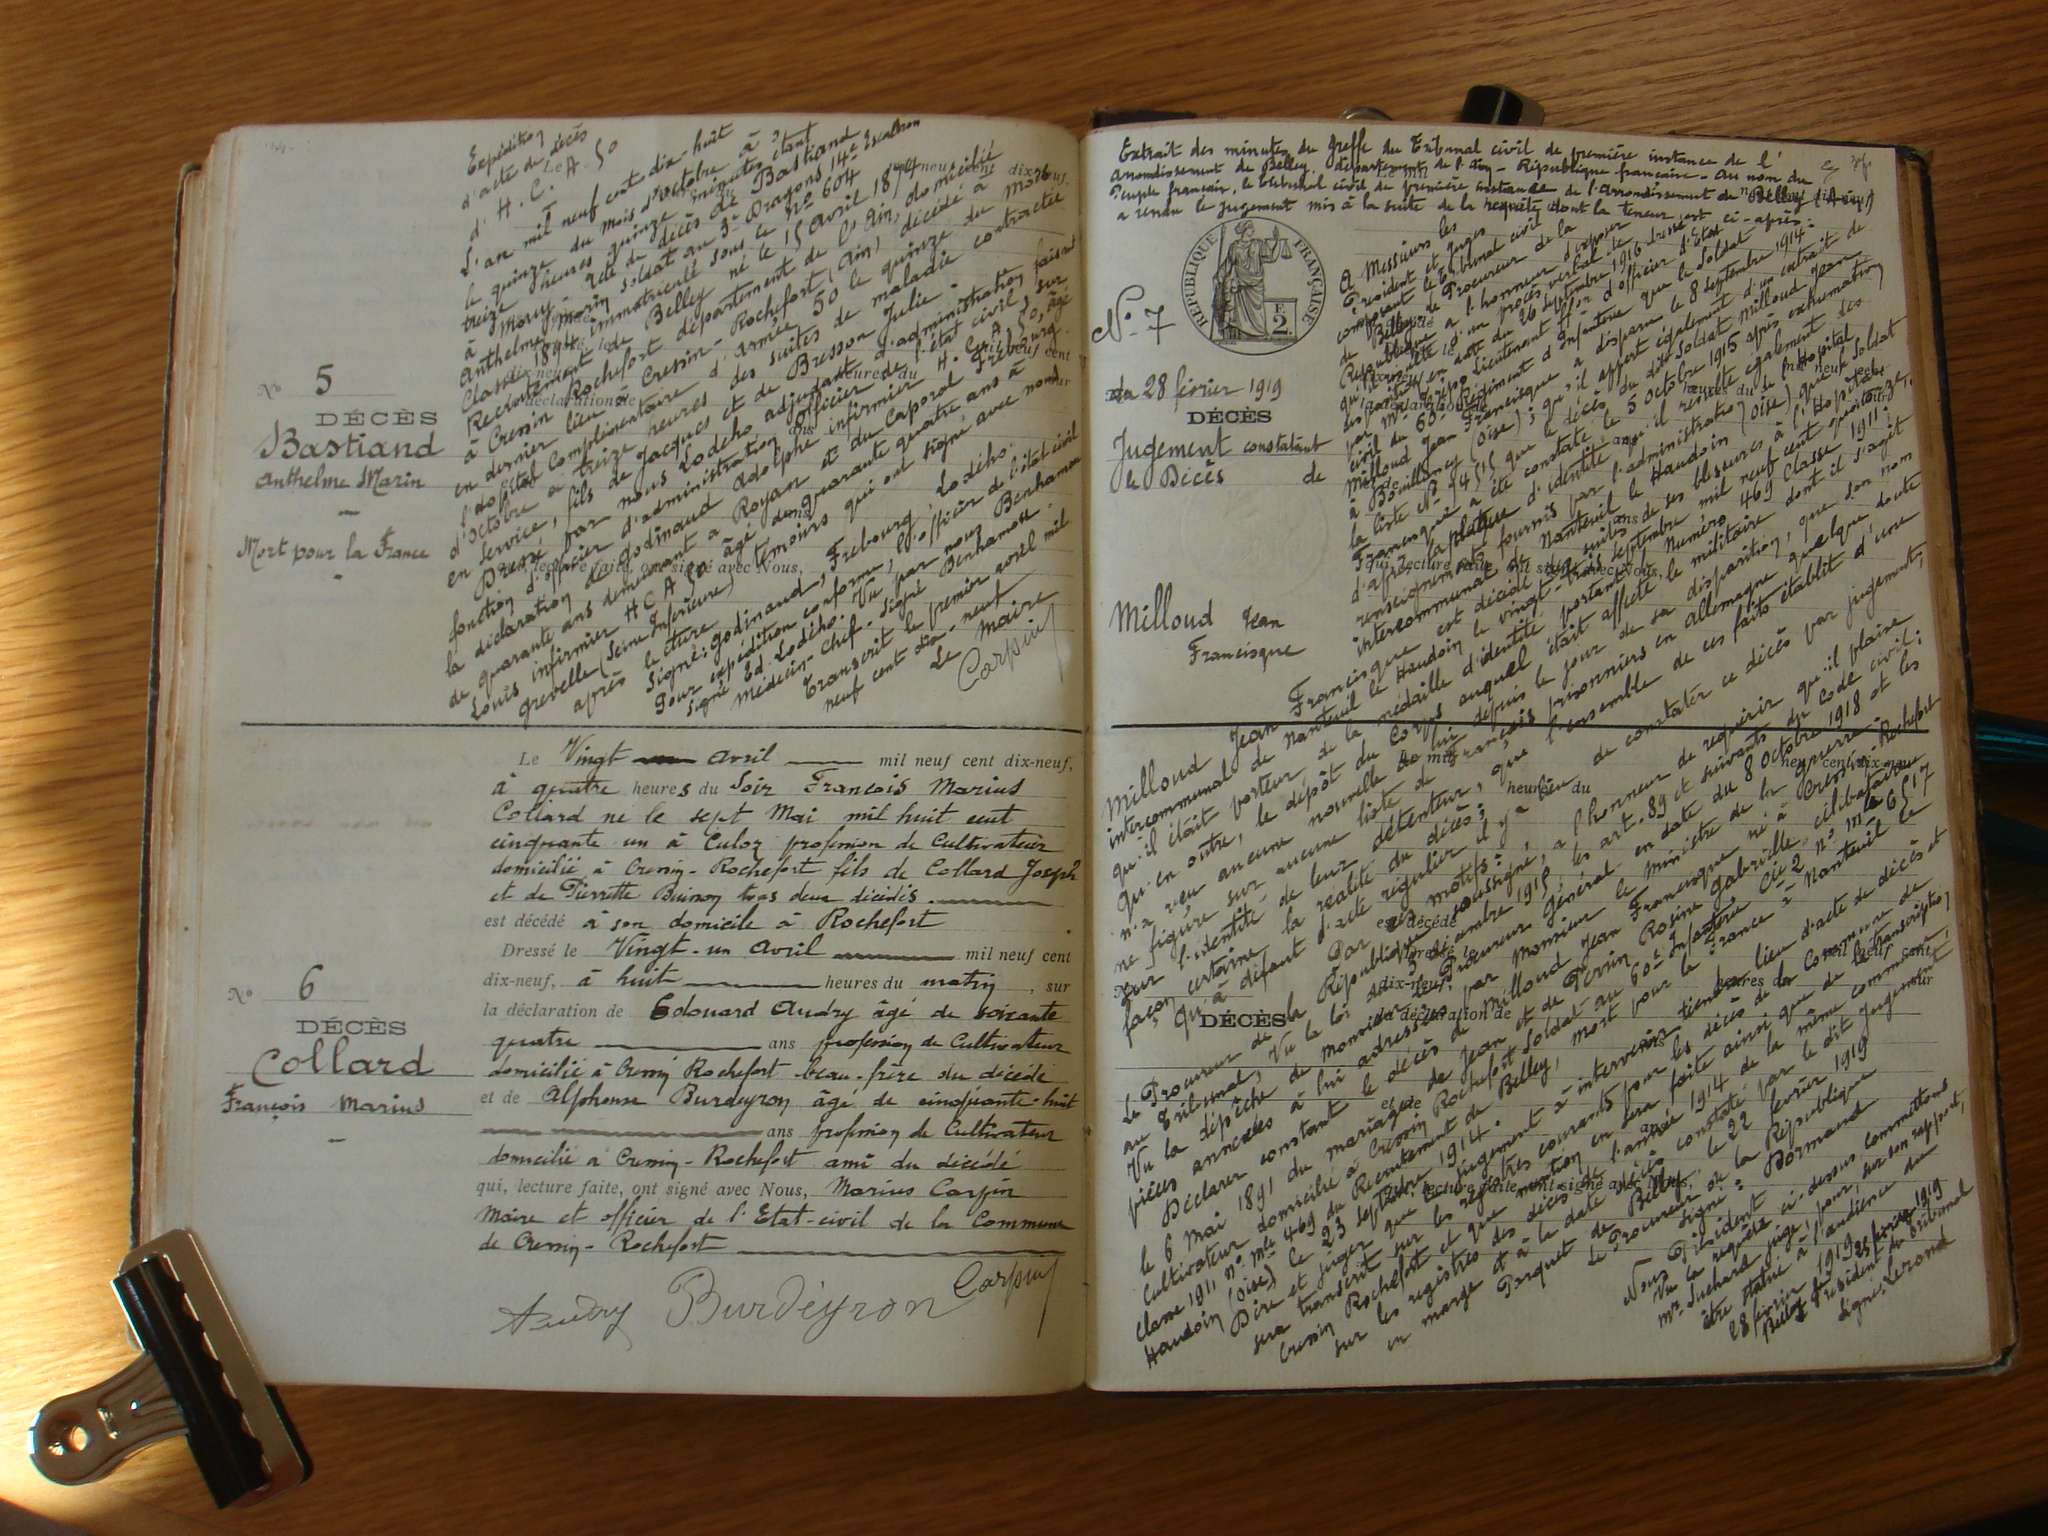 Expédition
d'acte de décès
d'H. C. A 50
L'an mil neuf cent dix-huit
le quinze du mois d'octobre à
treize heures quinze minutes étant
à Acte de décès de Bastiand
Anthelme Marin soldat au 3e Dragons 14e Escadron
Classe 1894 immatriculé sous le No 604
Recrutement de Belley né le 15 avril 1874
à Cressin Rochefort département de l'Ain, domicilié
en dernier lieu à Cressin-Rochefort (Ain) décédé à
l'hôpital complémentaire d'armée 50 le quinze du mois
d'octobre à treize heures des suites de maladie contractée
en service, fils de Jacques et de Bresson Julie -
Dressé par nous Lodého adjudant d'administration faisant
fonction d'officier d'administration officier de l'état civil, sur
la déclaration de Godinaud Adolphe infirmier H. C. A 50, âgé
de quarante ans demeurant à Royan et du Caporal Frebourg
Louis infirmier H C A 50 âgé de quarante quatre ans à
grevelle (Seine Inférieure) témoins qui ont signé avec nous
après lecture
Signé: Godinaud, Frebourg, Lodého
Pour expédition conforme, l'officier de l'état civil
signé Ed. Lodého. Vu par nous Benhamou
Médecin-Chef. signé Benhamou
Transcrit le premier avril mil
neuf cent dix-neuf
Le Maire
Carpin
No 5
DÉCÈS
Bastiand
Anthelme Marin
Mort pour la France
qui, lecture faite, ont signé avec Nous,
Le Vingt avril mil neuf cent dix-neuf,
à quatre heures du Soir François Marius
Collard né le sept Mai mil huit cent
cinquante un à Culoz profession de Cultivateur
domicilié à Cressin-Rochefort fils de Collard Joseph
et de Pierrette tous deux décédés.
est décédé à son domicile à Rochefort
Dressé le Vingt-un avril mil neuf cent
dix-neuf, à huit heures du matin, sur
la déclaration de Edouard Audry âgé de soixante
quatre ans profession de Cultivateur
domicilié à Cressin Rochefort beau-frère du décédé
et de Alphonse Burdeyron âgé de cinquante-huit
ans profession de Cultivateur
domicilié à Cressin-Rochefort ami du décédé
qui, lecture faite, ont signé avec Nous, Marius Carpin
Maire et officier de l'Etat-civil de la Commune
de Cressin-Rochefort
Audry Burdeyron Carpin
No 6
DÉCÈS
Collard
François Marius
Extrait des minutes du Greffe du Tribunal civil de première instance de l'
arrondissement de Belley département de l'Ain - République française - Au nom du
Peuple français, le tribunal civil de première instance de l'arrondissement de Belley (Ain)
a rendu le jugement mis à la suite de la requête dont la teneur est ci-après:
RÉPUBLIQUE FRANÇAISE
E
2
No 7
du 28 février 1919
DÉCÈS
Jugement constatant
le Décès de
Milloud Jean
Francisque
A Messieurs les
Président et Juges
composant le Tribunal civil
de Belley
Le Procureur de la
République a l'honneur d'exposer
qu'il résulte d'un procès verbal de
en date du 26 septembre 1916 dressé
par Mr lieutenant d'officier d'état
civil du 60e Régiment d'Infanterie que le Soldat
Milloud Jean Francisque a disparu le 8 septembre 1914
à Bouillancy (Oise); qu'il appert également d'un extrait de
la liste No que le décès du dit soldat Milloud Jean
Francisque a été constaté le 5 octobre 1915 après exhumation
d'après sa plaque d'identité, qu'il résulte également des
renseignements fournis par l'administration de l'hôpital
intercommunal de Nanteuil le Haudoin (Oise) que le soldat
Milloud Jean Francisque est décédé des suites de ses blessures à l'hôpital
intercommunal de Nanteuil le Haudoin le vingt-trois septembre mil neuf cent quatorze,
qu'il était porteur de la médaille d'identité portant Numéro 469 Classe 1911.
Qu'en outre, le dépôt du Corps auquel était affecté le militaire dont il s'agit
n'a reçu aucune nouvelle de lui depuis le jour de sa disparition, que son nom
ne figure sur aucune liste de français prisonniers en Allemagne
sur l'identité de leur détenteur, que l'ensemble de ces faits établit d'une
façon certaine la réalité du décès;
Qu'à défaut d'acte régulier il y a lieu de constater ce décès par jugement,
Par ces motifs:
Le Procureur de la République soussigné, a l'honneur de requérir qu'il plaise
au Tribunal, Vu la loi du 3 décembre 1915, les art. 89 et suivants du code civil;
Vu la dépêche de Monsieur le Procureur Général en date du 8 octobre 1918 et les
pièces annexées à lui adressées par Monsieur le Ministre de la Guerre
Déclarer constant le décès de Milloud Jean Francisque né à Cressin-Rochefort
le 6 Mai 1891 du mariage de Jean et de Perrin Rosine Gabrielle, célibataire
Cultivateur domicilié à Cressin Rochefort Soldat au 60e Infanterie Cie 2 No Mle 6517
classe 1911 No Mle 469 du Recrutement de Belley, Mort pour la France à Nanteuil le
Haudoin (Oise) le 23 septembre 1914.
Dire et juger que le jugement à intervenir tiendra lieu d'acte de décès et
sera transcrit sur les registres courants pour les décès de la Commune de
Cressin Rochefort et que mention en sera faite ainsi que de la transcription
sur les registres des décès de l'année 1914 de la même commune,
en marge et à la date du décès constaté par le dit Jugement
Parquet de Belley, le 22 février 1919
Le Procureur de la République
signé: Dormand
Nous Président
Vu la requête ci-dessus commettons
Mr Suchard juge, pour, sur son rapport,
être statué à l'audience du
28 février 1919
Belley le 25 février 1919
Le Président du Tribunal
signé: Lerond
DÉCÈS